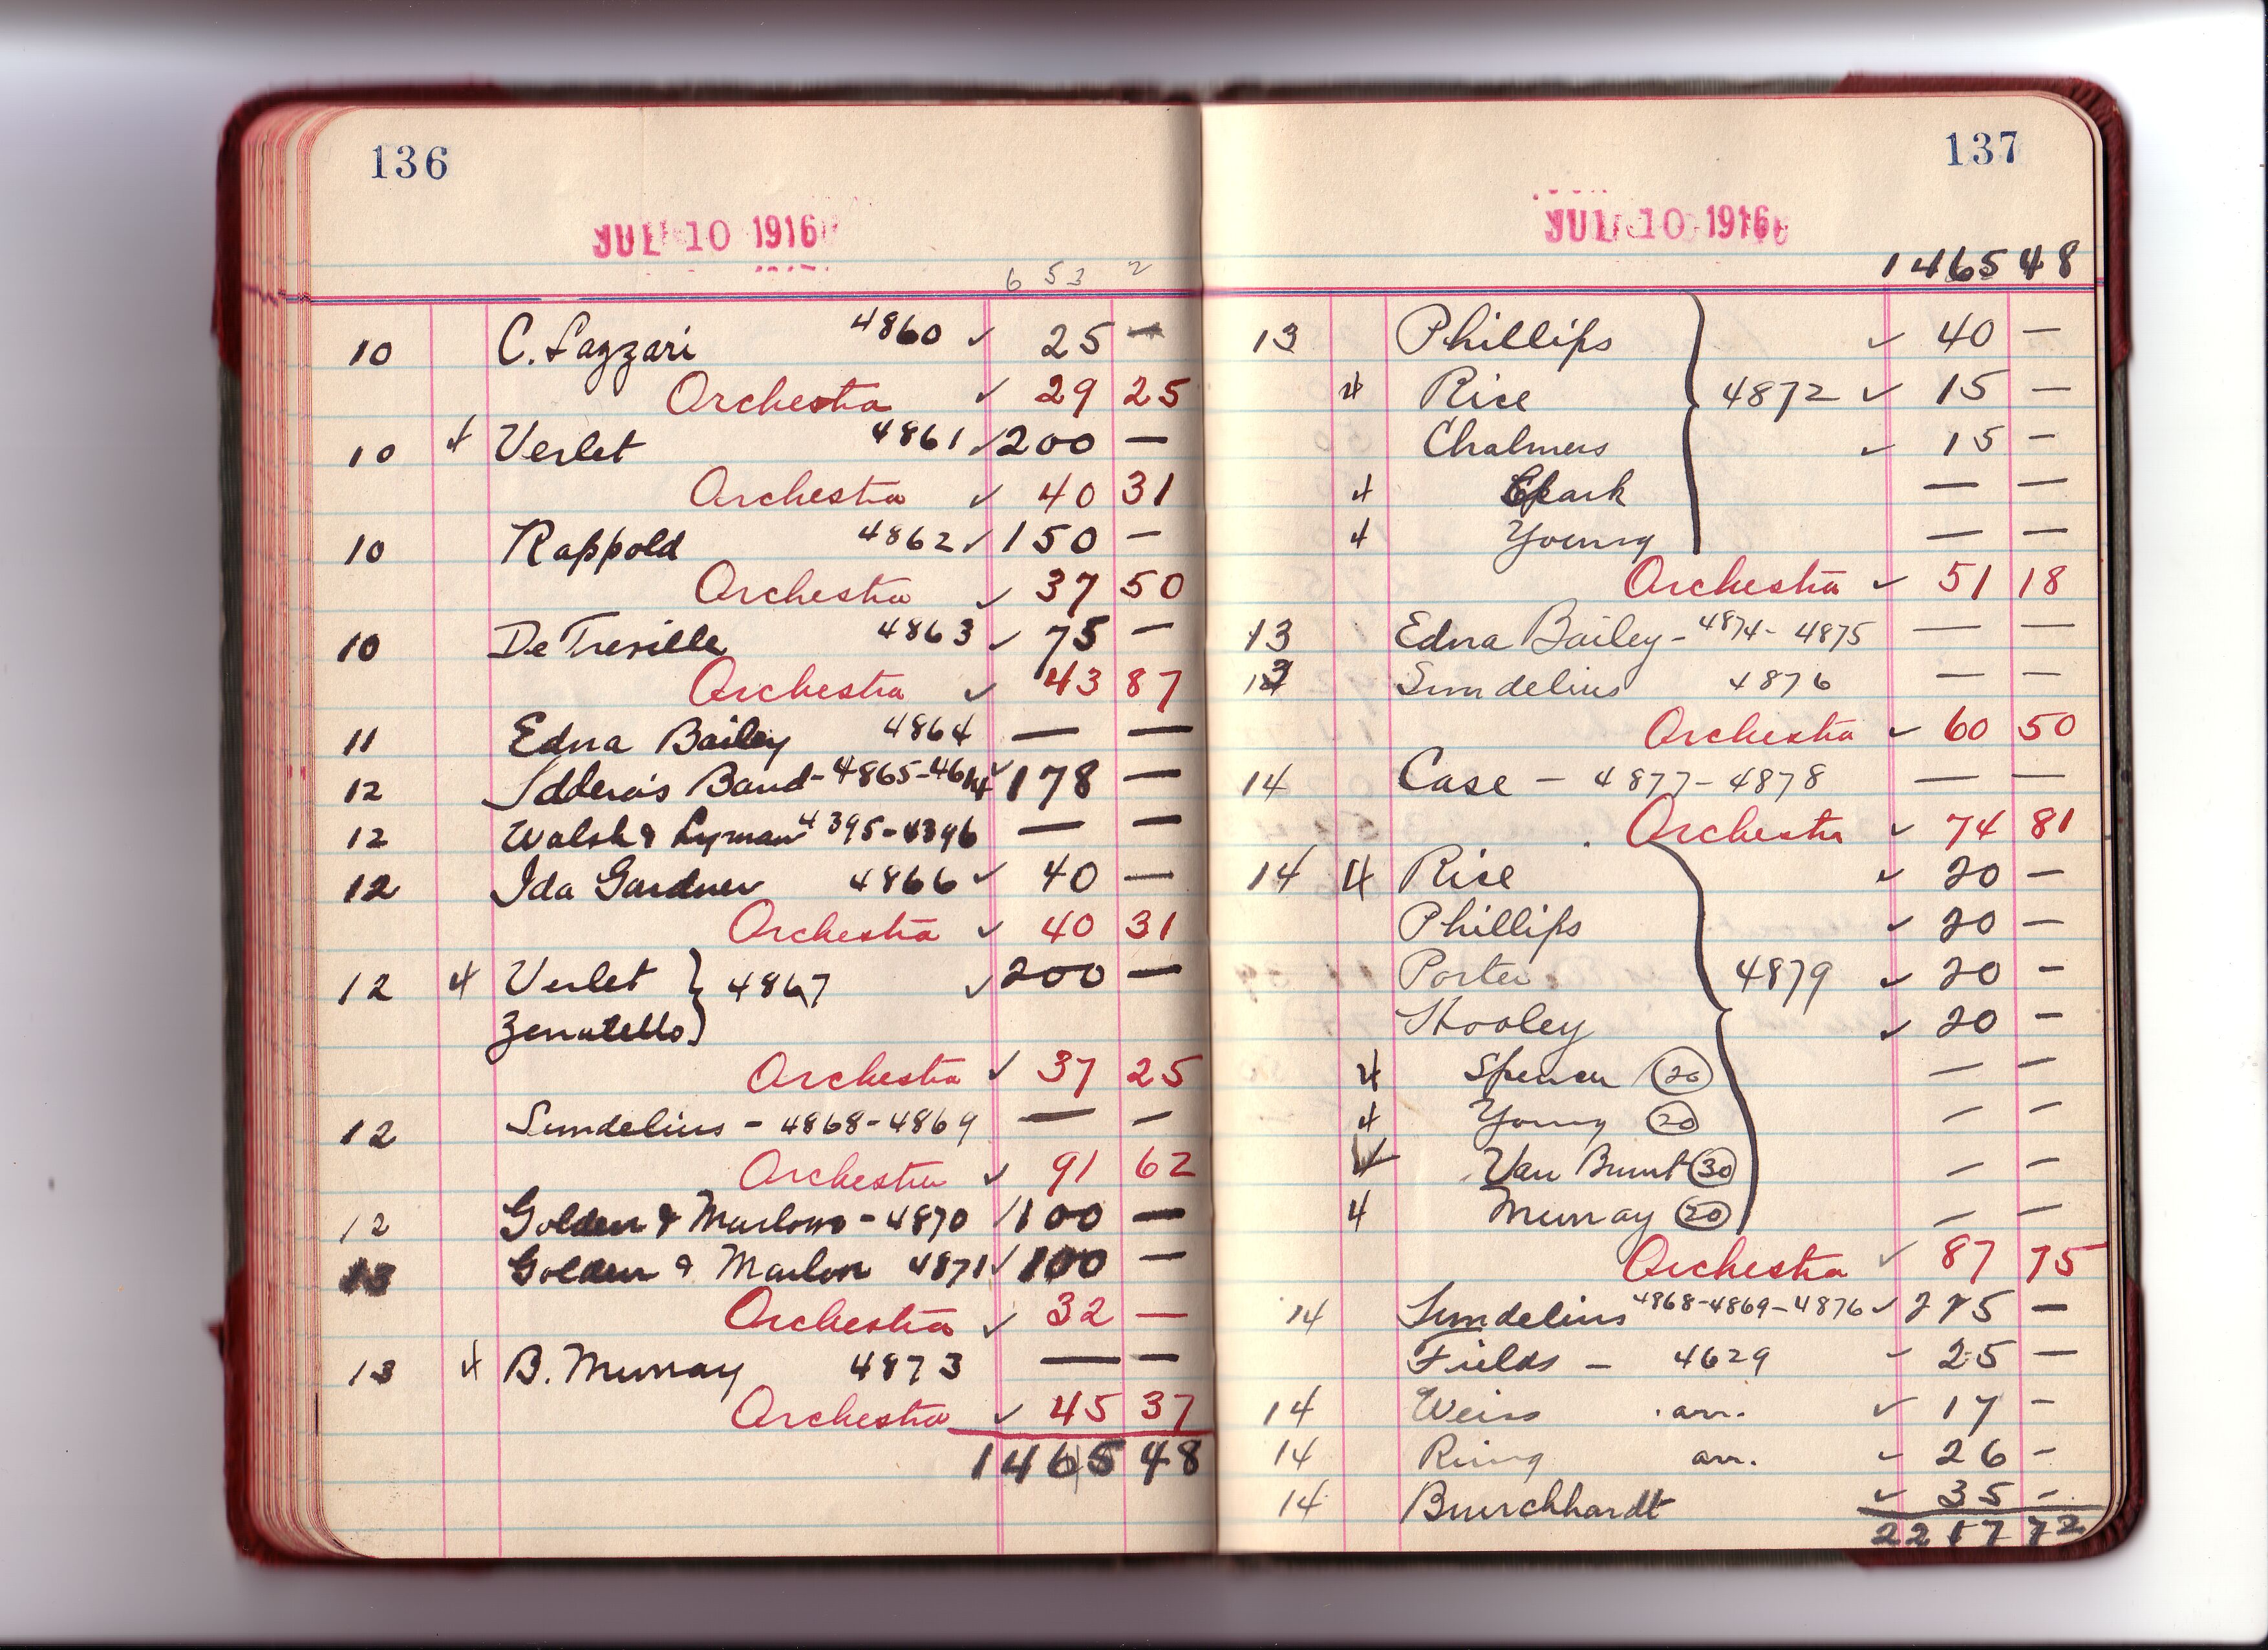 136
JUL 10 1916
6 53 2
10 C. Lazzari 4860 ✓ 25 —
Orchestra ✓ 29 25
10 4 Verlet 4861 ✓ 200 —
Orchestra ✓ 40 31
10 Rappold 4862 ✓ 150 —
Orchestra ✓ 37 50
10 De Treville 4863 ✓ 75 —
Orchestra ✓ 43 87
11 Edna Bailey 4864 — —
12 Band - 4865 - ✓ 178 —
12 Walsh & Lyman 4395-4396 — —
12 Ida Gardner 4866 ✓ 40 —
Orchestra ✓ 40 31
12 4 Verlet } 4867 ✓ 200 —
Zenatello }
Orchestra ✓ 37 25
12 Sundelius - 4868-4869 — —
Orchestra ✓ 91 62
12 Golden & Marlowe - 4870 ✓ 100 —
13 Golden & Marlow 4871 ✓ 100 —
Orchestra ✓ 32 —
13 4 B. Murray 4873 — —
Orchestra ✓ 45 37
1465 48
137
JUL 10 1916
1465 48
13 Phillips ✓ 40 —
4 Rice } 4872 ✓ 15 —
Chalmers ✓ 15 —
4 Clark — —
4 Young — —
Orchestra ✓ 51 18
13 Edna Bailey - 4874 - 4875 — —
13 Sundelius 4876 — —
Orchestra ✓ 60 50
14 Case - 4877-4878 — —
Orchestra ✓ 74 81
14 4 Rice ✓ 20 —
Phillips ✓ 20 —
Porter } 4879 ✓ 20 —
Hooley ✓ 20 —
4 Spencer (20) — —
4 Young (20) — —
4 Van Brunt (30) — —
4 Murray (20) — —
Orchestra ✓ 87 75
14 Sundelius 4868-4869-4876 ✓ 275 —
Fields - 4629 ✓ 25 —
14 Weiss arr. ✓ 17 —
14 Ring arr. ✓ 26 —
14 Burchhardt ✓ 35 —
2217 72